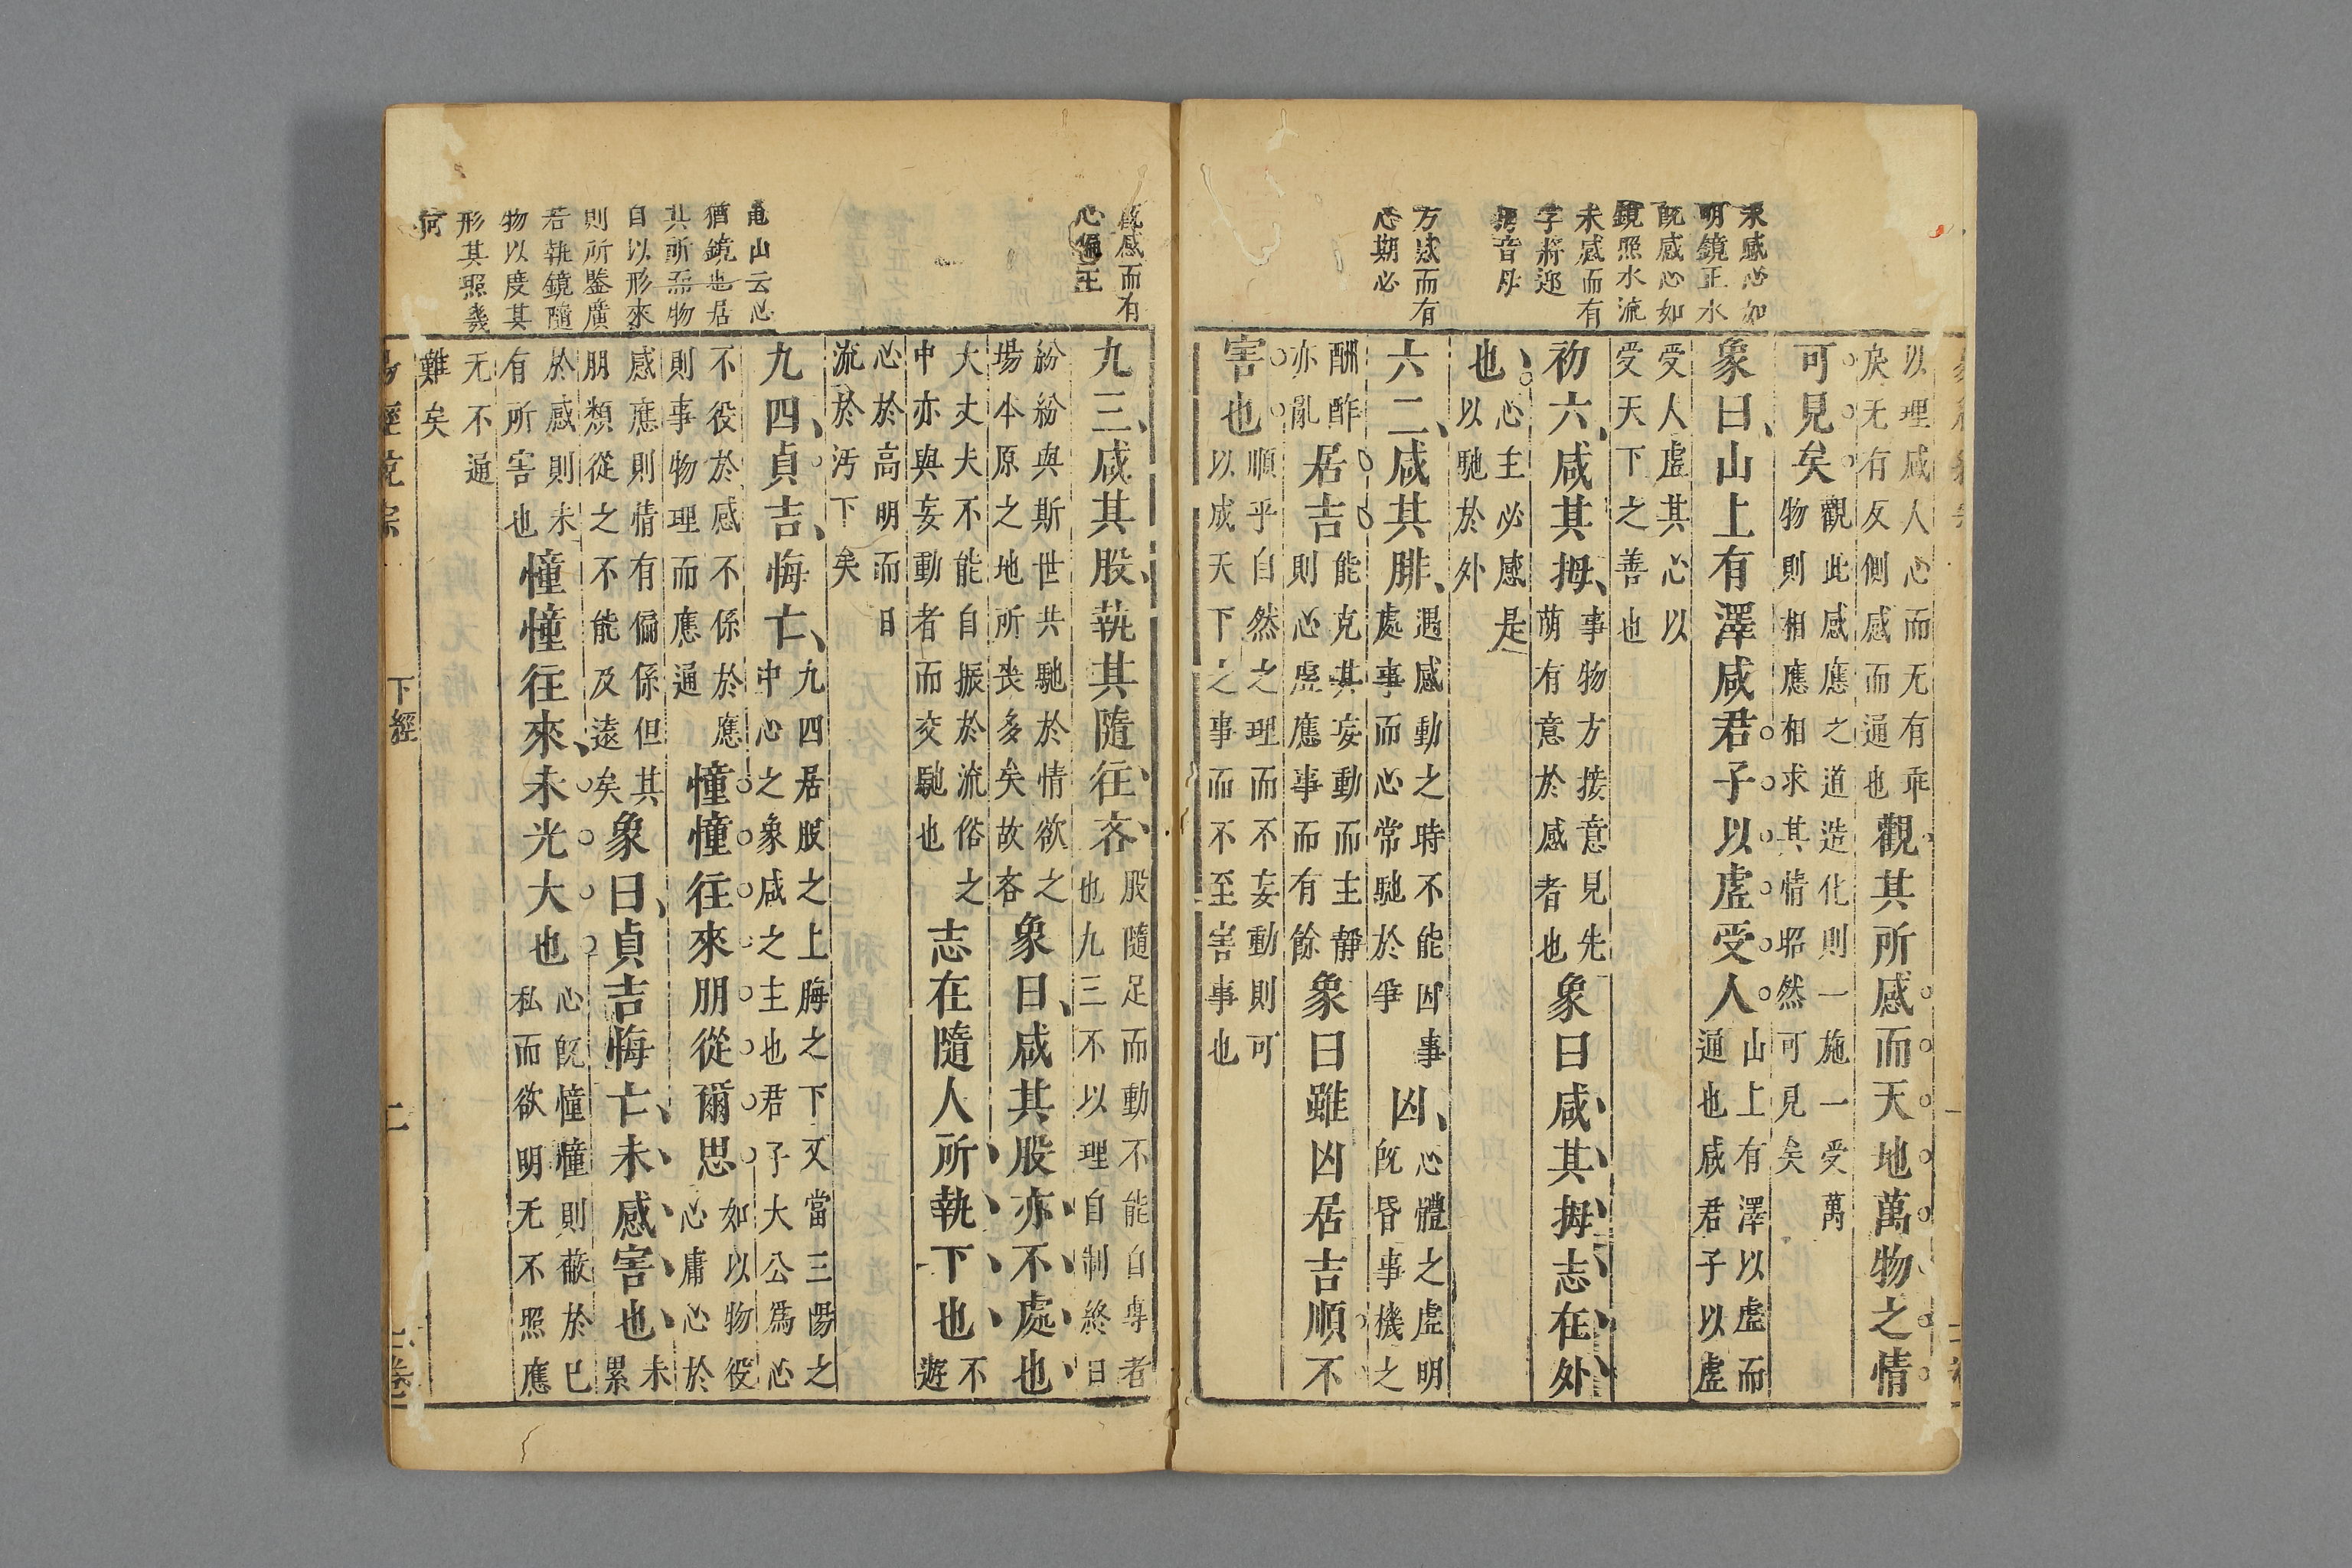 未感心如
明鏡正水
既感心如
鏡照水流
未感而有
字將迎
拇音母
方感而有
心期必
以理感人心而无有乖
戾无有反側感而通也觀其所感而天地萬物之情
可見矣觀此感應之道造化則一施一受萬
物則相應相求其情昭然可見矣
象曰山上有澤咸君子以虛受人山上有澤以虛而
通也感君子以虛
受人虛其心以
受天下之善也
初六咸其拇事物方接意見先
萌有意於感者也象曰咸其拇志在外
也心主必感是
以馳於外
六二咸其腓遇感動之時不能因事
處事而心常馳於爭凶心體之虛明
既昏事機之
酬酢
亦亂居吉能克其妄動而主靜
則心虛應事而有餘象曰雖凶居吉順不
害也順乎自然之理而不妄動則可
以成天下之事而不至害事也
既感而有
心偏主
九三咸其股執其隨往吝股隨足而動不能自專者
也九三不以理自制終日
紛紛與斯世共馳於情欲之
場本原之地所喪多矣故吝象曰咸其股亦不處也
大丈夫不能自振於流俗之
中亦與妄動者而交馳也志在隨人所執下也不
遊
心於高明而日
流於汚下矣
龜山云心
猶鏡也居
其所而物
自以形來
則所鑒廣
若執鏡隨
物以度其
形其照幾
何
九四貞吉悔亡九四居股之上脢之下又當三陽之
中心之象咸之主也君子大公爲心
不役於感不係於應
則事物理而應通憧憧往來朋從爾思如以物役
心庸心於
感應則情有偏係但其
朋類從之不能及遠矣象曰貞吉悔亡未感害也未
累
於感則未
有所害也憧憧往來未光大也心既憧憧則蔽於已
私而欲明无不照應
无不通
難矣
下經
二